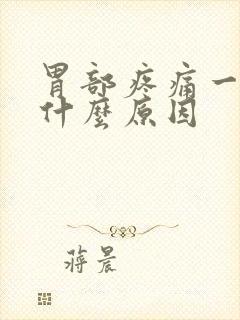 胃部疼痛一
什麼原因
蒋晨